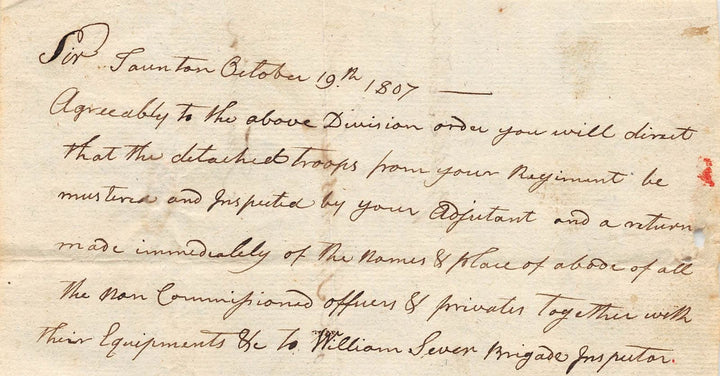 Sir Taunton October 19.th 1807 —
Agreeably to the above Division order you will direct
that the detached troops from your Regiment be
mustered and Inspected by your Adjutant and a return
made immediately of the Names & Place of abode of all
the non Commissioned officers & privates Together with
their Equipments &c to William Sever Brigade Inspector.